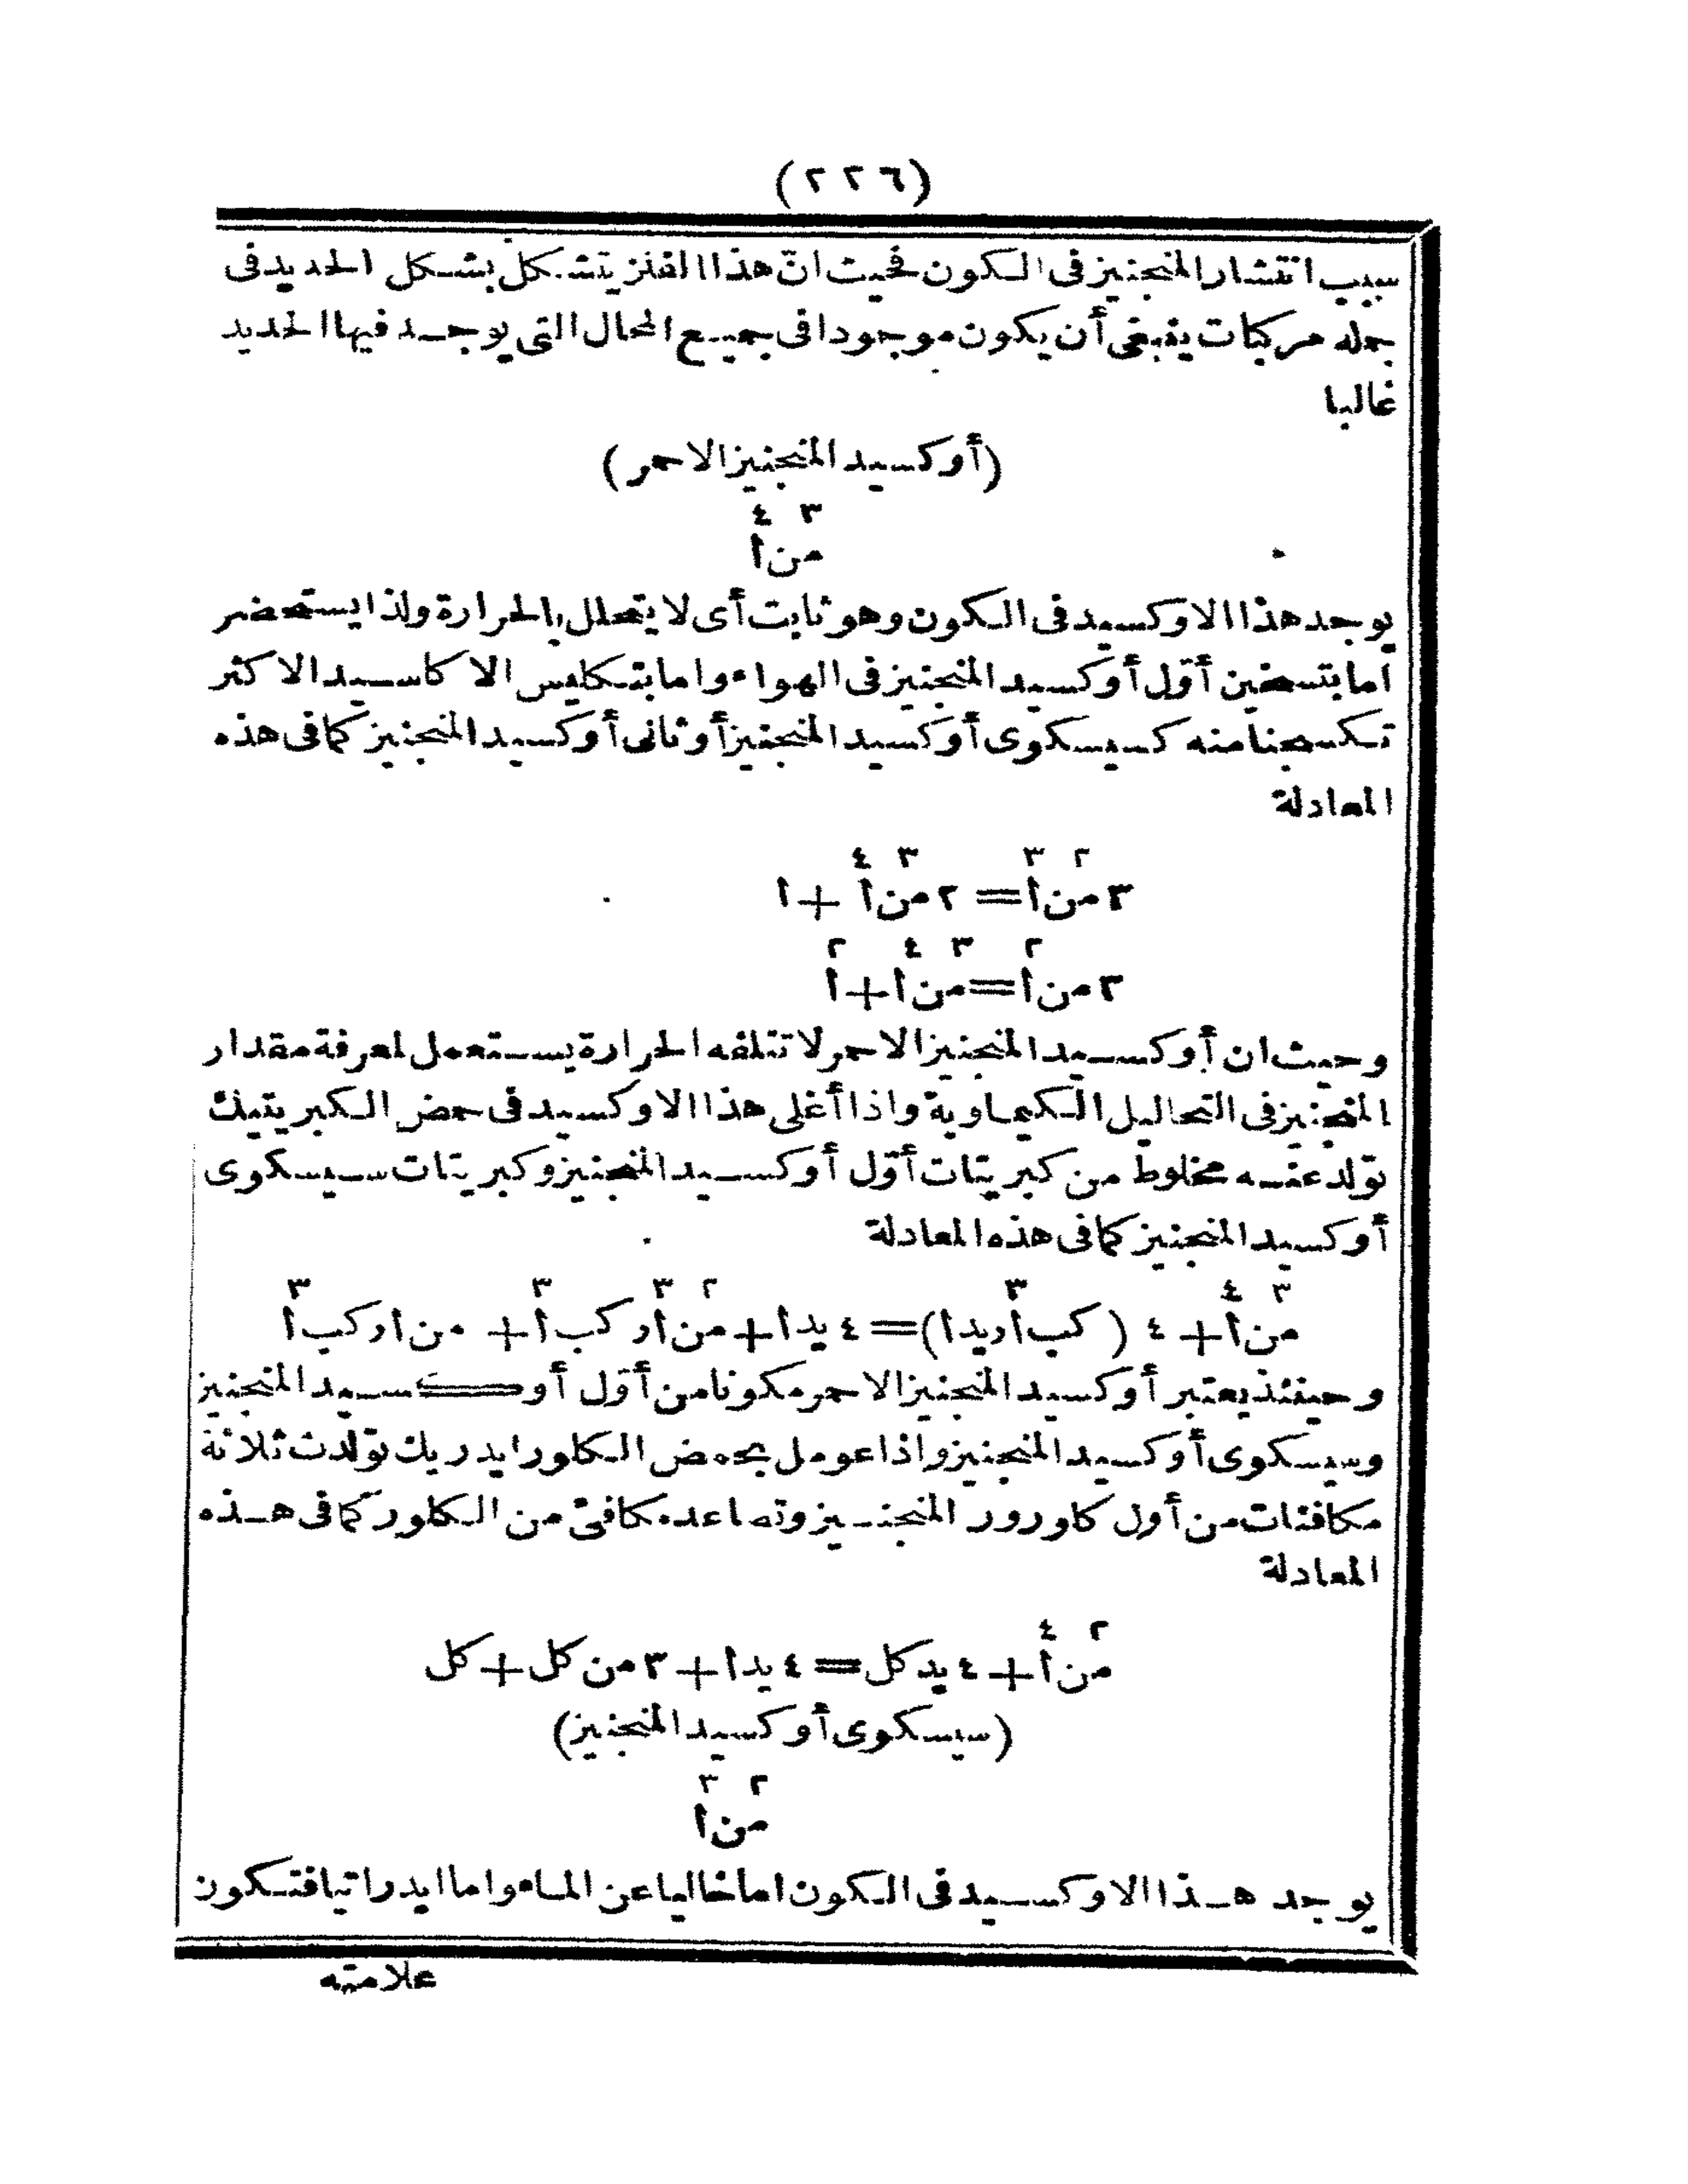 (٢٢٦)
سبب انتشار المنجنيز فى الكون فحيث انّ هذا الفلز يتشكل بشكل الحديد فى
جملة مركبات ينبغى أن يكون موجودا فى جميع المحال التى يوجد فيها الحديد
غالبا
(أوكسيد المنجنيز الاحمر)
٣ ٤
من ا
يوجد هذا الاوكسيد فى الكون وهو ثابت أى لا يتحلل بالحرارة ولذا يستحضر
اما بتسخين أوّل أوكسيد المنجنيز فى الهواء واما بتكليس الاكاسيد الاكثر
تكسجنا منه كسيسكوى أوكسيد المنجنيز أو ثانى أوكسيد المنجنيز كما فى هذه
المعادلة
٢ ٣ ٣ ٤
٣ من ا = ٢ من ا + ا
٢ ٣ ٤ ٢
٣ من ا = من ا + ا
وحيث ان أوكسيد المنجنيز الاحمر لا تتلفه الحرارة يستعمل لمعرفة مقدار
المنجنيز فى التحاليل الكيماوية واذا أغلى هذا الاوكسيد فى حمض الكبريتيك
تولد عنه مخلوط من كبريتات أوّل أوكسيد المنجنيز وكبريتات سيسكوى
أوكسيد المنجنيز كما فى هذه المعادلة
٣ ٤ ٣ ٢ ٣ ٣ ٣
من ا + ٤ (كب ار يدا) = ٤ يدا + من ار كب ا + من ار كب ا
وحينئذ يعتبر أوكسيد المنجنيز الاحمر مكونا من أوّل أوكسيد المنجنيز
وسيسكوى أوكسيد المنجنيز واذا عومل بحمض الكلورايدريك تولدت ثلاثة
مكافئات من أول كلورور المنجنيز وتصاعد مكافئ من الكلور كما فى هذه
المعادلة
٢ ٤
من ا + ٤ يد كل = ٤ يدا + ٣ من كل + كل
(سيسكوى أوكسيد المنجنيز)
٢ ٣
من ا
يوجد هذا الاوكسيد فى الكون اما خاليا عن الماء واما ايدراتيا فتكون
علامته